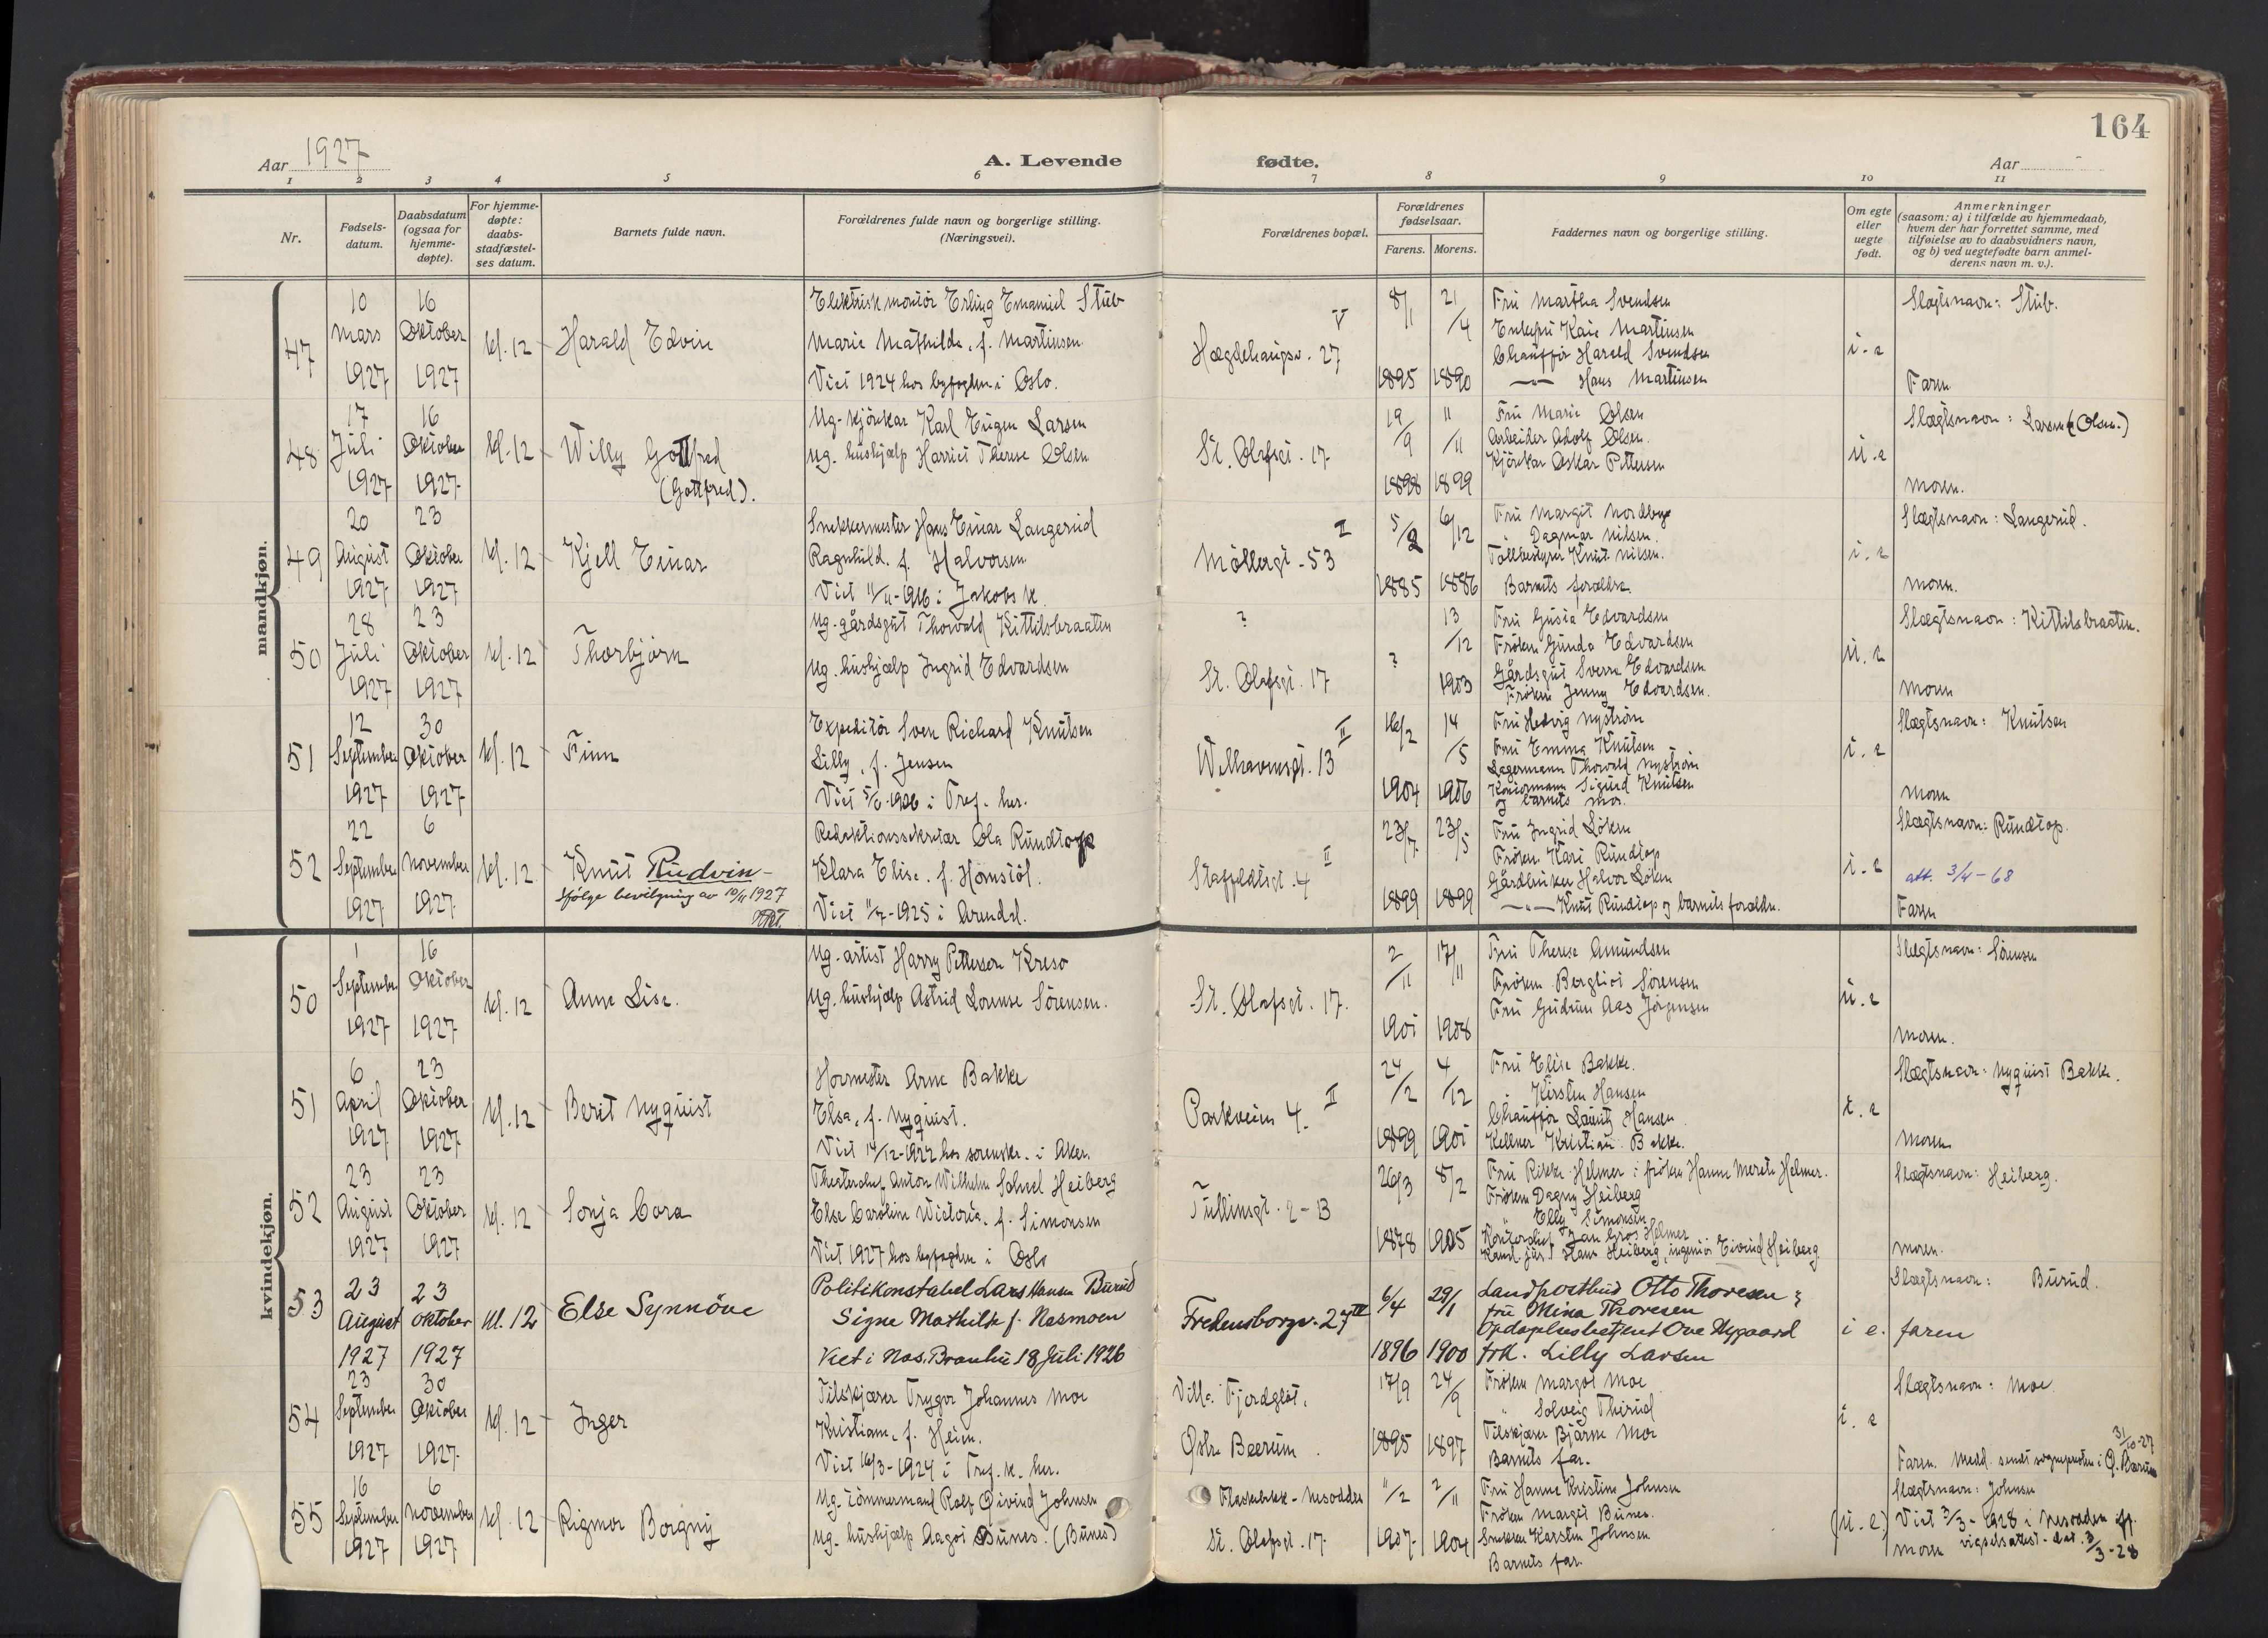 164
Aar 1927
A. Levende fødte.
Aar
1 2 3 4 5 6 7 8 9 10 11
Nr.
Fødsels-
datum.
Daabsdatum
(ogsaa for
hjemme-
døpte).
For hjemme-
døpte:
daabs-
stadfæstel-
ses datum.
Barnets fulde navn.
Forældrenes fulde navn og borgerlige stilling.
(Næringsvei).
Forældrenes bopæl.
Forældrenes
fødselsaar.
Farens. Morens.
Faddernes navn og borgerlige stilling.
Om egte
eller
uegte
født.
Anmerkninger
(saasom: a) i tilfælde av hjemmedaab,
hvem der har forrettet samme, med
tilføielse av to daabsvidners navn,
og b) ved uegtefødte barn anmel-
derens navn m. v.).
mandkjøn.
47
10
Mars
1927
16
Oktober
1927
kl. 12
Harald Edvin
Elektrisk montör Erling Emanuel Stub
Marie Mathilde, f. Martinsen
Viet 1924 hos byfogden i Oslo.
V
Hægdehaugsv. 27
8/1
1895
21/4
1890
Fru Martha Svendsen
Enkefru Kaie Martinsen
Chauffør Harald Svendsen
—"— Hans Martinsen
i. e
Slægtsnavn: Stub.
Faren
48
17
Juli
1927
16
Oktober
1927
kl. 12
Willy Gottfred
(Gottfred).
Ug. kjörekar Karl Eugen Larsen
Ug. hushjælp Harriet Therese Olsen
St. Olafsgt. 17
19/9
1898
11/11
1899
Fru Marie Olsen
Arbeider Adolf Olsen.
Kjörekar Oskar Pettersen
u. e
Slægtsnavn: Larsen (Olsen.)
Moren.
49
20
August
1927
23
Oktober
1927
kl. 12
Kjell Einar
Snekkermester Hans Einar Langerud
Ragnhild. f. Halvorsen
Viet 11/11-1916 i Jakobs k.
II
Møllergt. 53
5/2
1885
6/12
1886
Fru Margit Nordbye
" Dagmar Nilsen.
Tollbestyrer Knut Nilsen.
Barnets forældre.
i. e
Slægtsnavn: Langerud.
Moren.
50
28
Juli
1927
23
Oktober
1927
kl. 12
Thorbjörn
Ug. gårdsgut Thorvald Kittilsbraaten
Ug. hushjælp Ingrid Edvardsen
?
St. Olafsgt. 17
?
13/12
1903
Fru Gusta Edvardsen
Fröken Gunda Edvardsen
Gårdsgut Sverre Edvardsen
Fröken Jenny Edvardsen.
u. e
Slægtsnavn: Kittilsbraaten.
Moren
51
12
September
1927
30
Oktober
1927
kl. 12
Finn
Expeditör Sven Richard Knutsen
Lilly, f. Jensen
Viet 5/6-1926 i Tref. her.
II
Welhavensgt. 13
16/2
1904
14/5
1906
Fru Hedvig Nyström
Fru Emma Knutsen
Lagermann Thorvald Nyström
Kontormann Sigurd Knutsen
og barnets mor.
i. e
Slægtsnavn: Knutsen
Moren
52
22
September
1927
6
November
1927
kl. 12
Knut Rudvin-
ifölge bevilgning av 10/11 1927
Redaktionssekretær Ola Rundtop
Klara Elise. f. Homstöl.
Viet 11/7-1925 i Arendal.
II
Staffeldtsgt. 4
23/7
1899
23/5
1899
Fru Ingrid Löken
Fröken Kari Rundtop
Gårdbruker Halvor Löken
—"— Knut Rundtop og barnets forældre.
i. e
Slægtsnavn: Rundtop.
att. 3/4-68
Faren
kvindekjøn.
50
1
September
1927
16
Oktober
1927
kl. 12
Anne Lise.
Ug. artist Harry Petterson Kreso
Ug. hushjælp Astrid Lorense Sörensen.
St. Olafsgt. 17.
2/11
1901
17/11
1908
Fru Therese Amundsen
Fröken Bergliot Sörensen
Fru Gudrun Aas Jörgensen
u. e
Slægtsnavn: Sörensen
Moren.
51
6
April
1927
23
Oktober
1927
kl. 12
Berit Nyquist
Hovmester Arne Bakke
Elsa, f. Nyquist.
Viet 14/12-1922 hos sorenskr. i Aker.
II
Parkveien 4.
24/2
1899
4/12
1901
Fru Elise Bakke.
" Kirsten Hansen
Chauffør Lauritz Hansen
Kellner Kristian Bakke.
i. e
Slægtsnavn: Nyquist Bakke.
Moren
52
23
August
1927
23
Oktober
1927
kl. 12
Sonja Cora
Theaterchef Anton Wilhelm Scheel Heiberg
Else Caroline Wictoria. f. Simonsen
Viet 1927 hos byfogden i Oslo
Tullinsgt. 2-B
26/3
1878
8/2
1905
Fru Rikke Helmer i fröken Hanne Merete Helmer.
Fröken Dagny Heiberg
" Elly Simonsen
Kontorchef Jan Gros Helmer
Kand. jur. Hans Heiberg, ingeniör Eivind Heiberg
Slægtsnavn: Heiberg.
moren.
53
23
August
1927
23
Oktober
1927
kl. 12
Else Synnöve
Politikonstabel Lars Hansen Burud
Signe Mathilde f. Nasmoen
Viet i Nos. Branbu 18 Juli 1926
Fredensborgv. 27 IV
6/4
1896
29/1
1900
Landpostbud Otto Thoresen
fru Mina Thoresen
Opdagelsesbetjent Ove Nygaard
frk. Lilly Larsen
i e.
Slægtsnavn: Burud.
faren
54
23
September
1927
30
Oktober
1927
kl. 12
Inger
Tilskjærer Trygve Johannes Moe
Kristiane, f. Heien.
Viet 16/3-1924 i Tref. k. her.
Villa Fjordgløt,
Østre Bærum.
17/9
1895
24/9
1897
Fröken Margot Moe
" Solveig Thirud
Tilskjærer Bjarne Moe
Barnets far.
i. e
Slægtsnavn: Moe.
Faren. Medd. sendt sogneprest i Ø. Bærum 31/10-27
55
16
September
1927
6
November
1927
kl. 12
Rigmor Borgny
Ug. tömmermand Rolf Øivind Johnsen
Ug. hushjælp Aagot Bunes. (Bunes)
Flaskebekk - Nesodden
St. Olafsgt. 17.
11/2
1907
2/11
1904
Fru Hanne Kristine Johnsen
Fröken Margit Bunes.
Snekker Karsten Johnsen
Barnets far.
(u. e)
Slægtsnavn: Johnsen
Viet 3/3-1928 i Nesodden
vigselsattest. dat. 3/3-28
moren